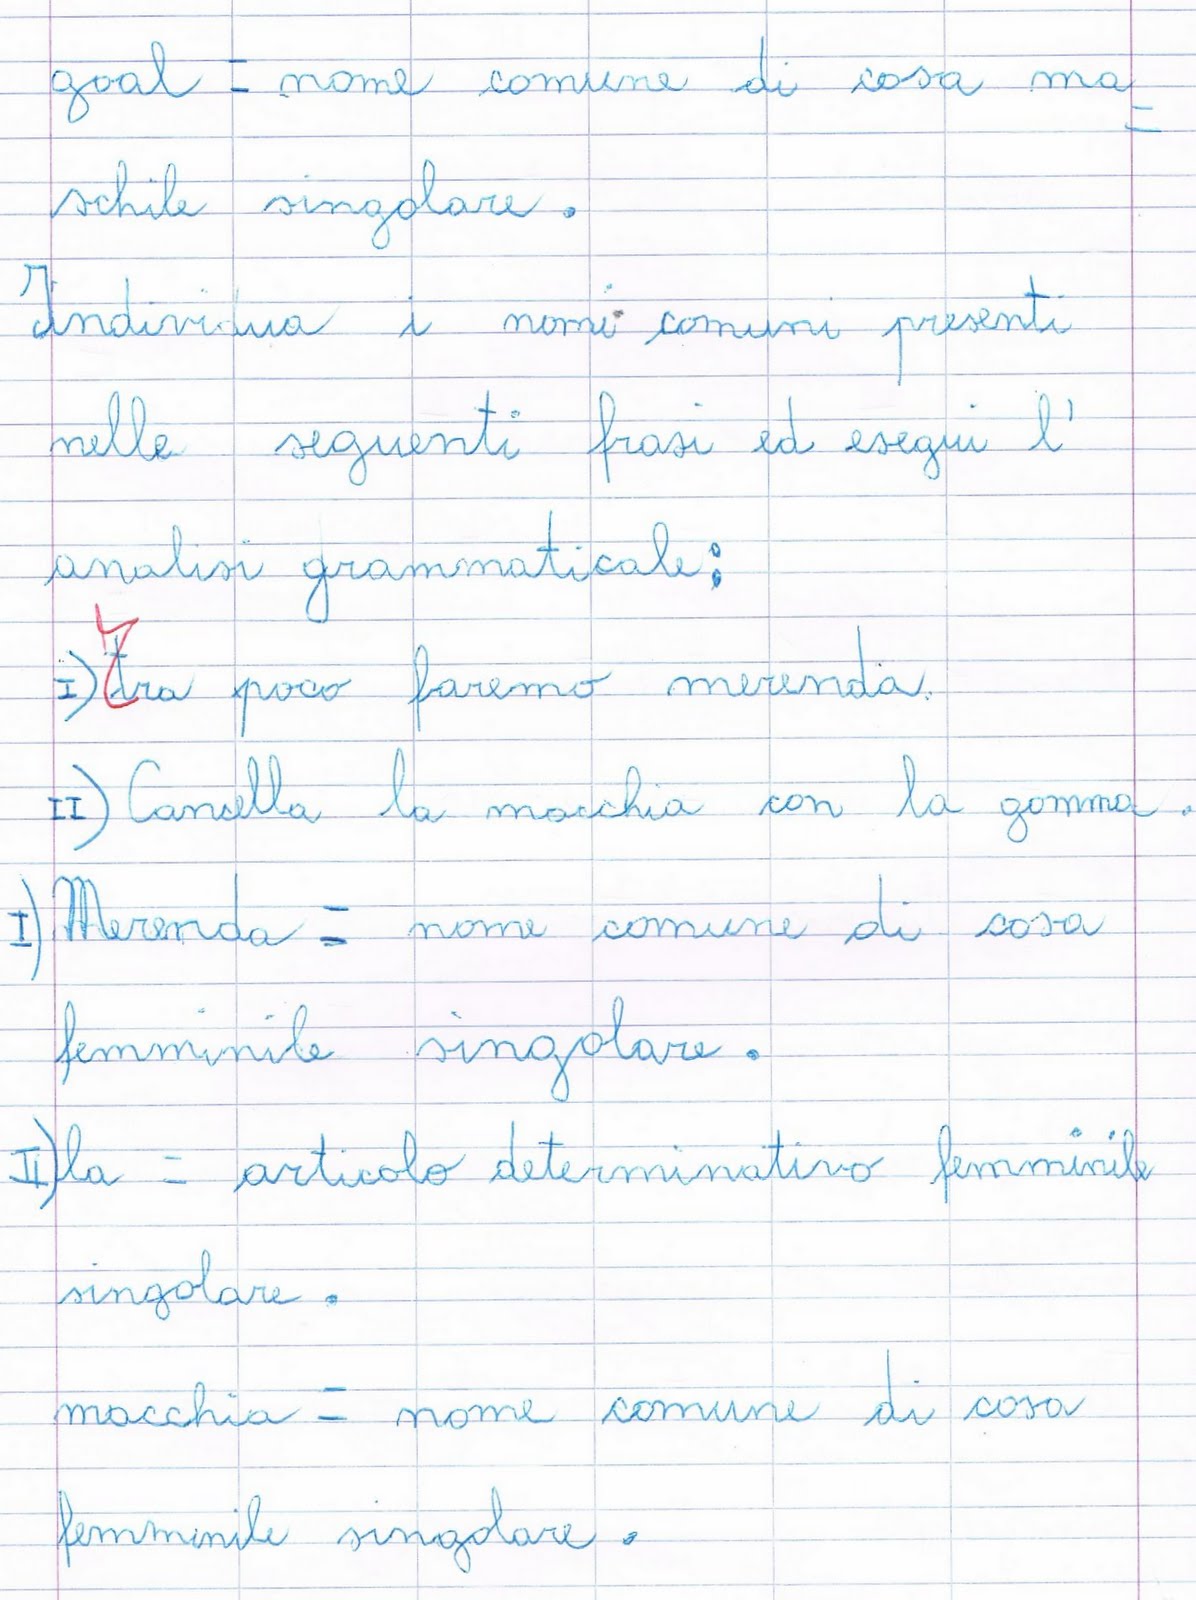 goal = nome comune di cosa ma=
schile singolare.
Individua i nomi comuni presenti
nelle seguenti frasi ed esegui l'
analisi grammaticale:
I) Tra poco faremo merenda.
II) Cancella la macchia con la gomma.
I) Merenda = nome comune di cosa
femminile singolare.
II) la = articolo determinativo femminile
singolare.
macchia = nome comune di cosa
femminile singolare.